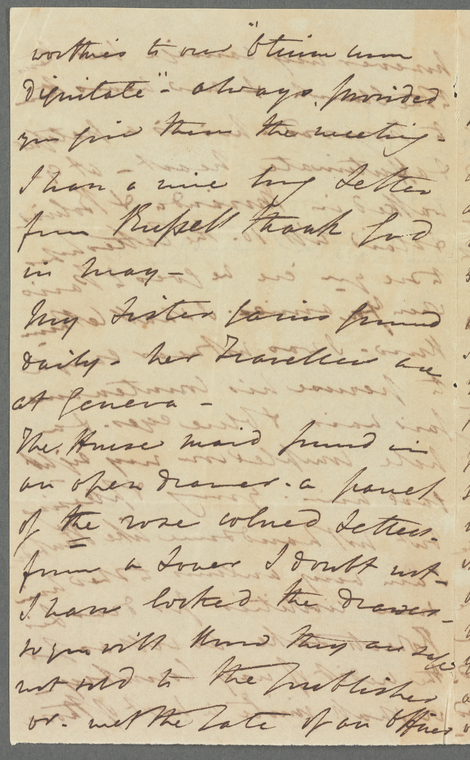 worthies to our "Otium cum
Dignitate" - always provided
you give them the meeting -
I have a nice long Letter
from Russell thank God
in May -
My Sister gains ground
daily - her Travellers are
at Geneva -
The House maid found in
an open drawer - a parcel
of the rose colored Letters -
from a Lover I doubt not -
I have locked the drawer -
so you will know they are safe
not sold to the publisher
or - met the fate of an Officer